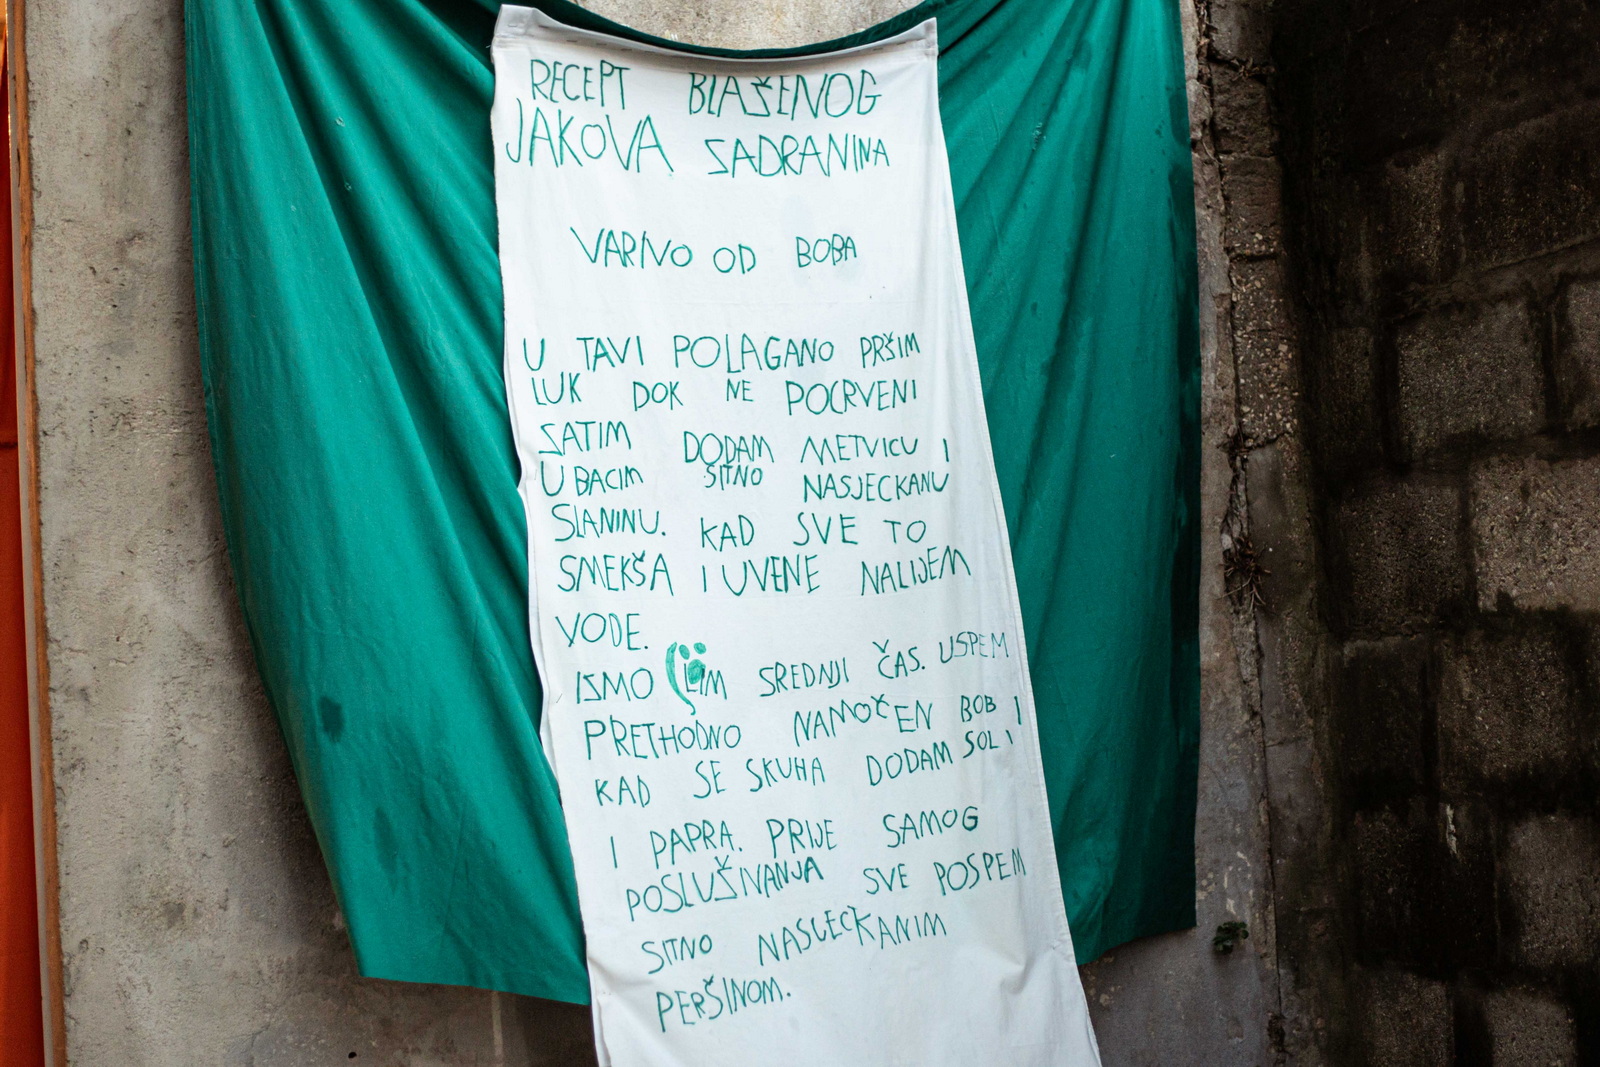 RECEPT BLAŠENOG
JAKOVA ZADRANINA
VARIVO OD BOBA
U TAVI POLAGANO PRŠIM
LUK DOK NE POCRVENI
ZATIM DODAM METVICU I
UBACIM SITNO NASJECKANU
SLANINU. KAD SVE TO
SMEKŠA I UVENE NALIJEM
VODE.
IZMO SREDNJI ČAS. USPEM
PRETHODNO NAMOČEN BOB I
KAD SE SKUHA DODAM SOL I
I PAPRA. PRIJE SAMOG
POSLUŠIVANJA SVE POSPEM
SITNO NASJECKANIM
PERŠINOM.